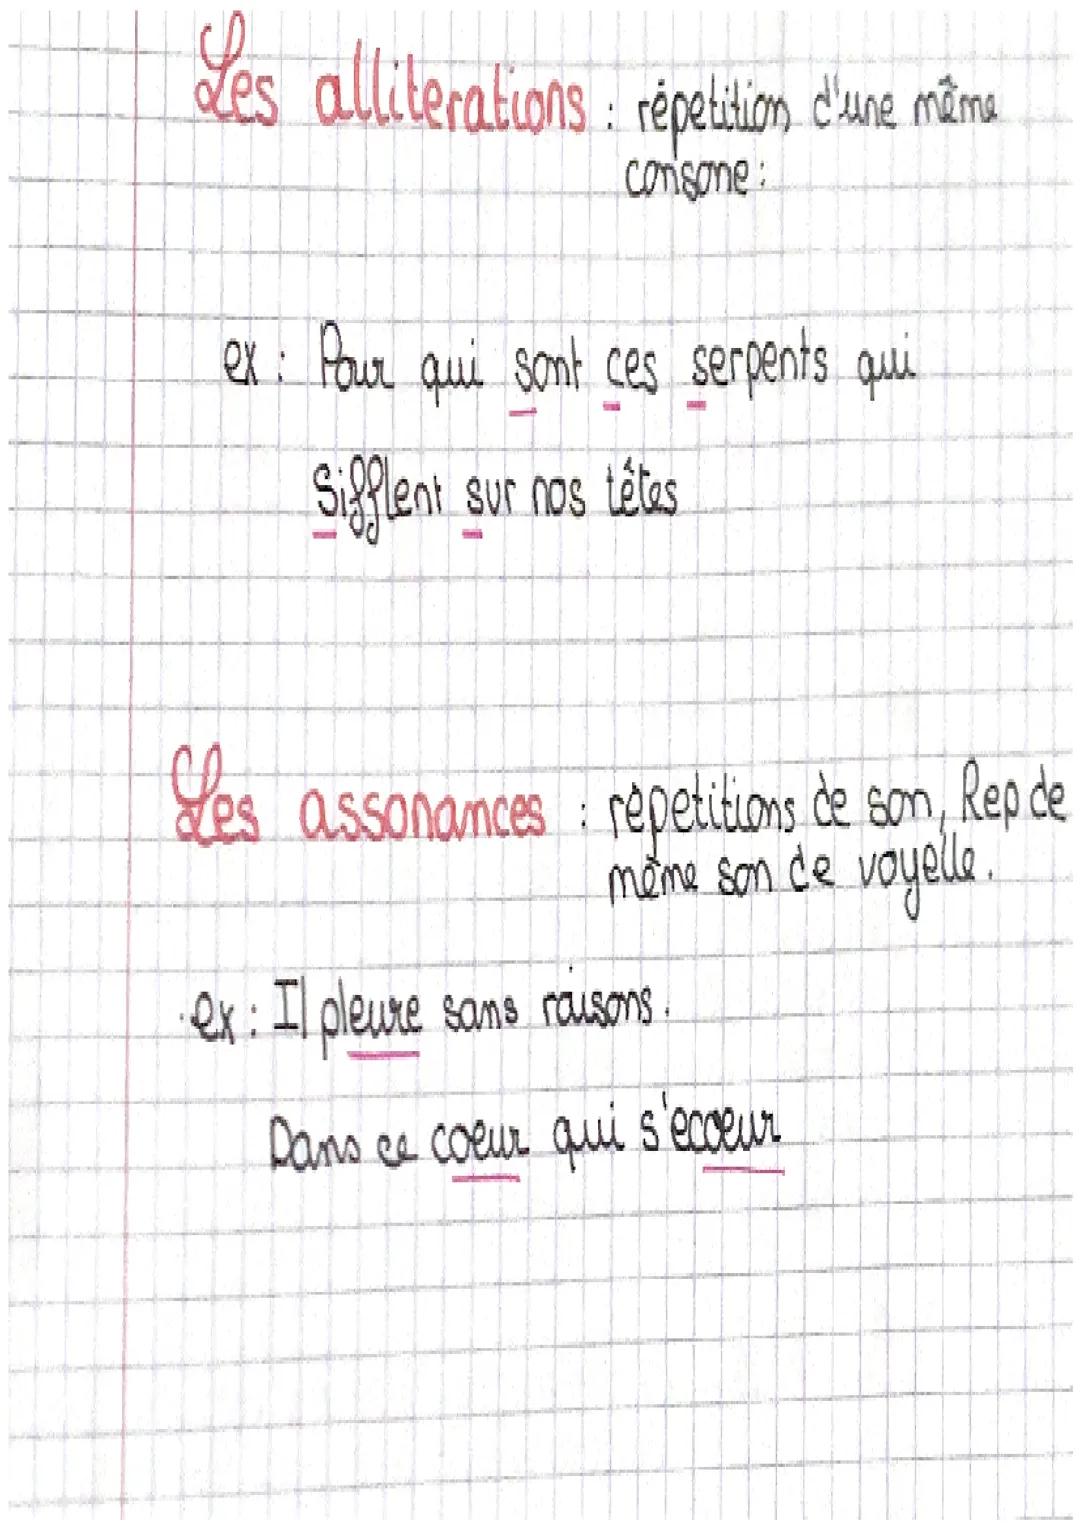 Les alliterations : répetition d'une même
consone :
ex : Pour qui sont ces serpents qui
Sifflent sur nos têtes
Les assonances : répetitions de son, Rep de
même son de voyelle.
ex : Il pleure sans raisons.
Dans ce coeur qui s'ecoeur